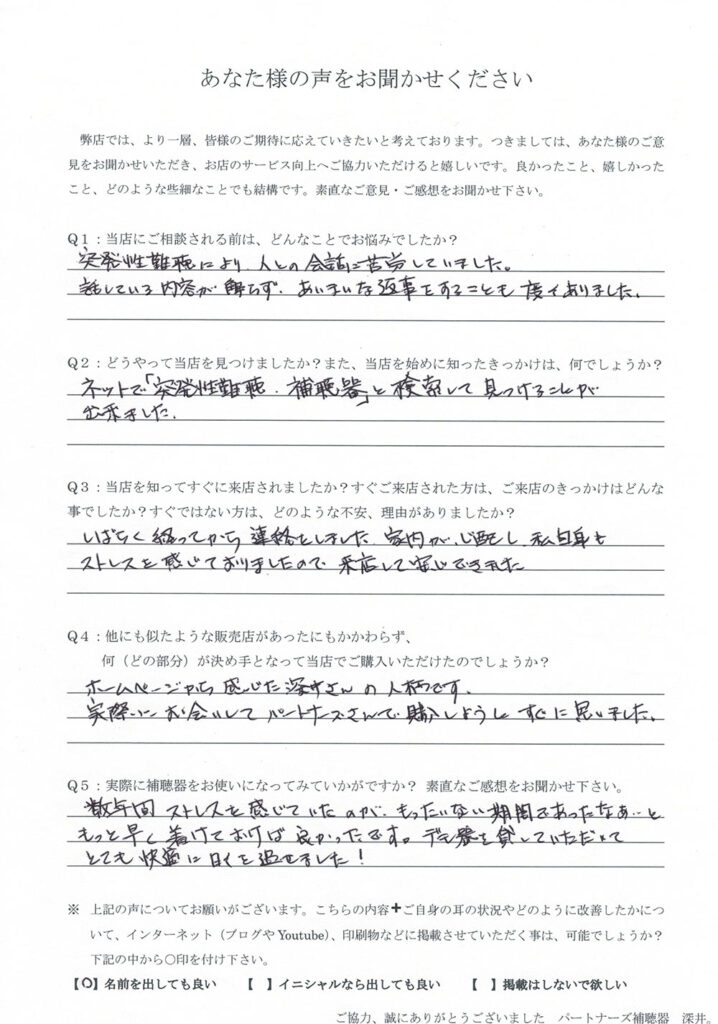 あなた様の声をお聞かせください
弊店では、より一層、皆様のご期待に応えていきたいと考えております。つきましては、あなた様のご意
見をお聞かせいただき、お店のサービス向上へご協力いただけると嬉しいです。良かったこと、嬉しかった
こと、どのような些細なことでも結構です。素直なご意見・ご感想をお聞かせ下さい。
Q1：当店にご相談される前は、どんなことでお悩みでしたか？
突発性難聴により、人との会話に苦労していました。
話している内容が解らず、あいまいな返事をすることも度々ありました。
Q2：どうやって当店を見つけましたか？また、当店を始めに知ったきっかけは、何でしょうか？
ネットで「突発性難聴．補聴器」と検索して見つけることが
出来ました．
Q3：当店を知ってすぐに来店されましたか？すぐご来店された方は、ご来店のきっかけはどんな
事でしたか？すぐではない方は、どのような不安、理由がありましたか？
しばらく経ってから連絡をしました 家内が心配し、私自身も
ストレスを感じておりましたので 来店して安心できました
Q4：他にも似たような販売店があったにもかかわらず、
何（どの部分）が決め手となって当店でご購入いただけたのでしょうか？
ホームページから感じた深井さんの人柄です．
実際にお会いしてパートナーズさんで購入しようとすぐに思いました。
Q5：実際に補聴器をお使いになってみていかがですか？ 素直なご感想をお聞かせ下さい。
数年間ストレスを感じていたのが、もったいない期間であったなあ…と
もっと早く着けておけば良かったです。デモ器を貸していただいて
とても快適に日々を過せました！
※ 上記の声についてお願いがございます。こちらの内容＋ご自身の耳の状況やどのように改善したかにつ
いて、インターネット（ブログやYoutube）、印刷物などに掲載させていただく事は、可能でしょうか？
下記の中から〇印を付け下さい。
【〇】名前を出しても良い 【 】イニシャルなら出しても良い 【 】掲載はしないで欲しい
ご協力、誠にありがとうございました パートナーズ補聴器 深井。